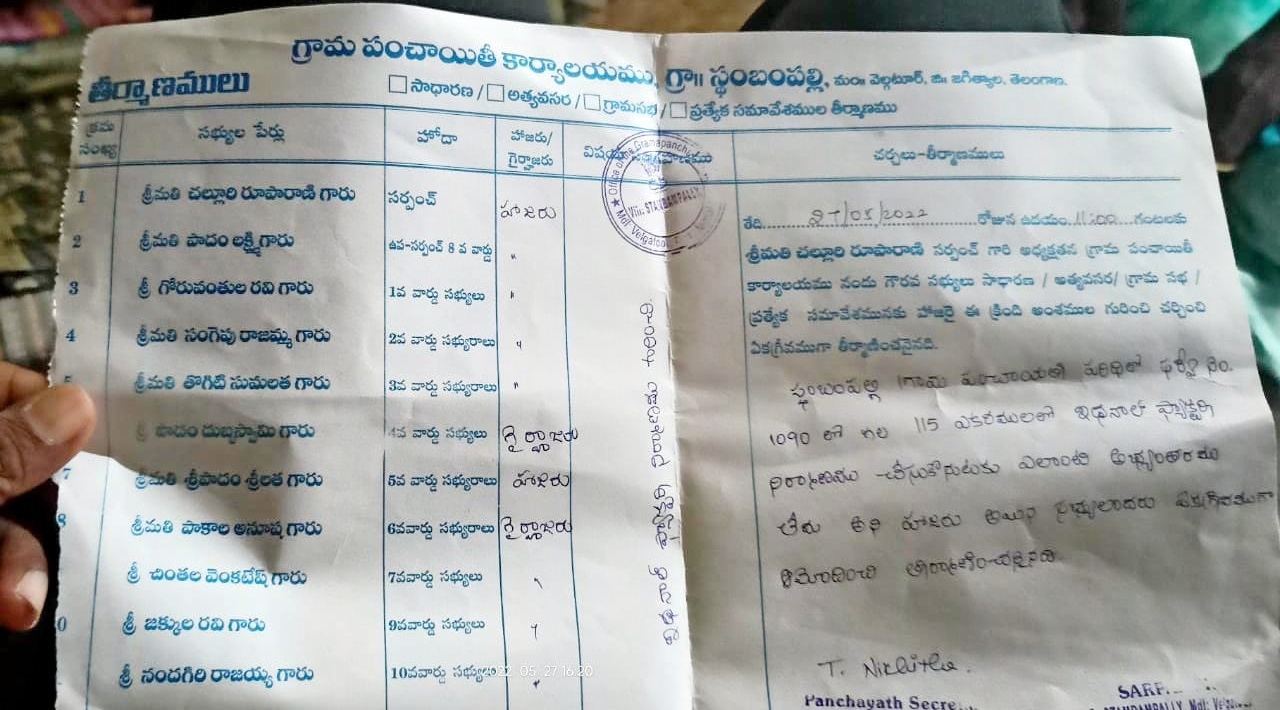 గ్రామ పంచాయితీ కార్యాలయము, గ్రా॥ స్థంబంపల్లి, మం॥ వెల్గటూర్, జి॥ జగిత్యాల, తెలంగాణ.
తీర్మాణములు □ సాధారణ / □ అత్యవసర / □ గ్రామసభ / □ ప్రత్యేక సమావేశముల తీర్మాణము
క్రమ సంఖ్య సభ్యుల పేర్లు హోదా హాజరు/ గైర్హాజరు చర్చలు-తీర్మాణములు
1 శ్రీమతి చల్లూరి రూపారాణి గారు సర్పంచ్ హాజరు
2 శ్రీమతి పాదం లక్ష్మి గారు ఉప-సర్పంచ్ 8 వ వార్డు "
3 శ్రీ గోరువంతుల రవి గారు 1వ వార్డు సభ్యులు "
4 శ్రీమతి సంగెపు రాజమ్మ గారు 2వ వార్డు సభ్యురాలు "
5 శ్రీమతి తొగిటి సుమలత గారు 3వ వార్డు సభ్యురాలు "
శ్రీ పాదం దుబ్బస్వామి గారు 4వ వార్డు సభ్యులు గైర్హాజరు
7 శ్రీమతి శ్రీపాదం శ్రీలత గారు 5వ వార్డు సభ్యురాలు హాజరు
8 శ్రీమతి పాకాల అనూష గారు 6వవార్డు సభ్యురాలు గైర్హాజరు
శ్రీ చింతల వెంకటేష్ గారు 7వవార్డు సభ్యులు
0 శ్రీ జక్కుల రవి గారు 9వవార్డు సభ్యులు
శ్రీ నందగిరి రాజయ్య గారు 10వవార్డు సభ్యులు
2022 05 27 16:20
ఇథనాల్ ఫ్యాక్టరీ నిర్మాణము గురించి.
Office of the Gramapanchayat
Vill: STAMBAMPALLY
Mdl Velgatoor
తేది 27/05/2022 రోజున ఉదయం 11:00 గంటలకు
శ్రీమతి చల్లూరి రూపారాణి సర్పంచ్ గారి అధ్యక్షతన గ్రామ పంచాయితీ
కార్యాలయము నందు గౌరవ సభ్యులు సాధారణ / అత్యవసర/ గ్రామ సభ /
ప్రత్యేక సమావేశమునకు హాజరై ఈ క్రింది అంశముల గురించి చర్చించి
ఏకగ్రీవముగా తీర్మాణించనైనది.
స్థంబంపల్లి గ్రామ పంచాయితీ పరిధిలో సర్వే నెం.
1090 లో గల 115 ఎకరములలో ఇథనాల్ ఫ్యాక్టరీ
నిర్మాణము చేసుకొనుటకు ఎలాంటి అభ్యంతరము
లేదు అని హాజరు అయిన సభ్యులందరు ఏకగ్రీవముగా
ఆమోదించి తీర్మాణించనైనది.
T. Nikhitha.
Panchayath Secre
SARP
STAMBAMPALLY, Mdl: Velga